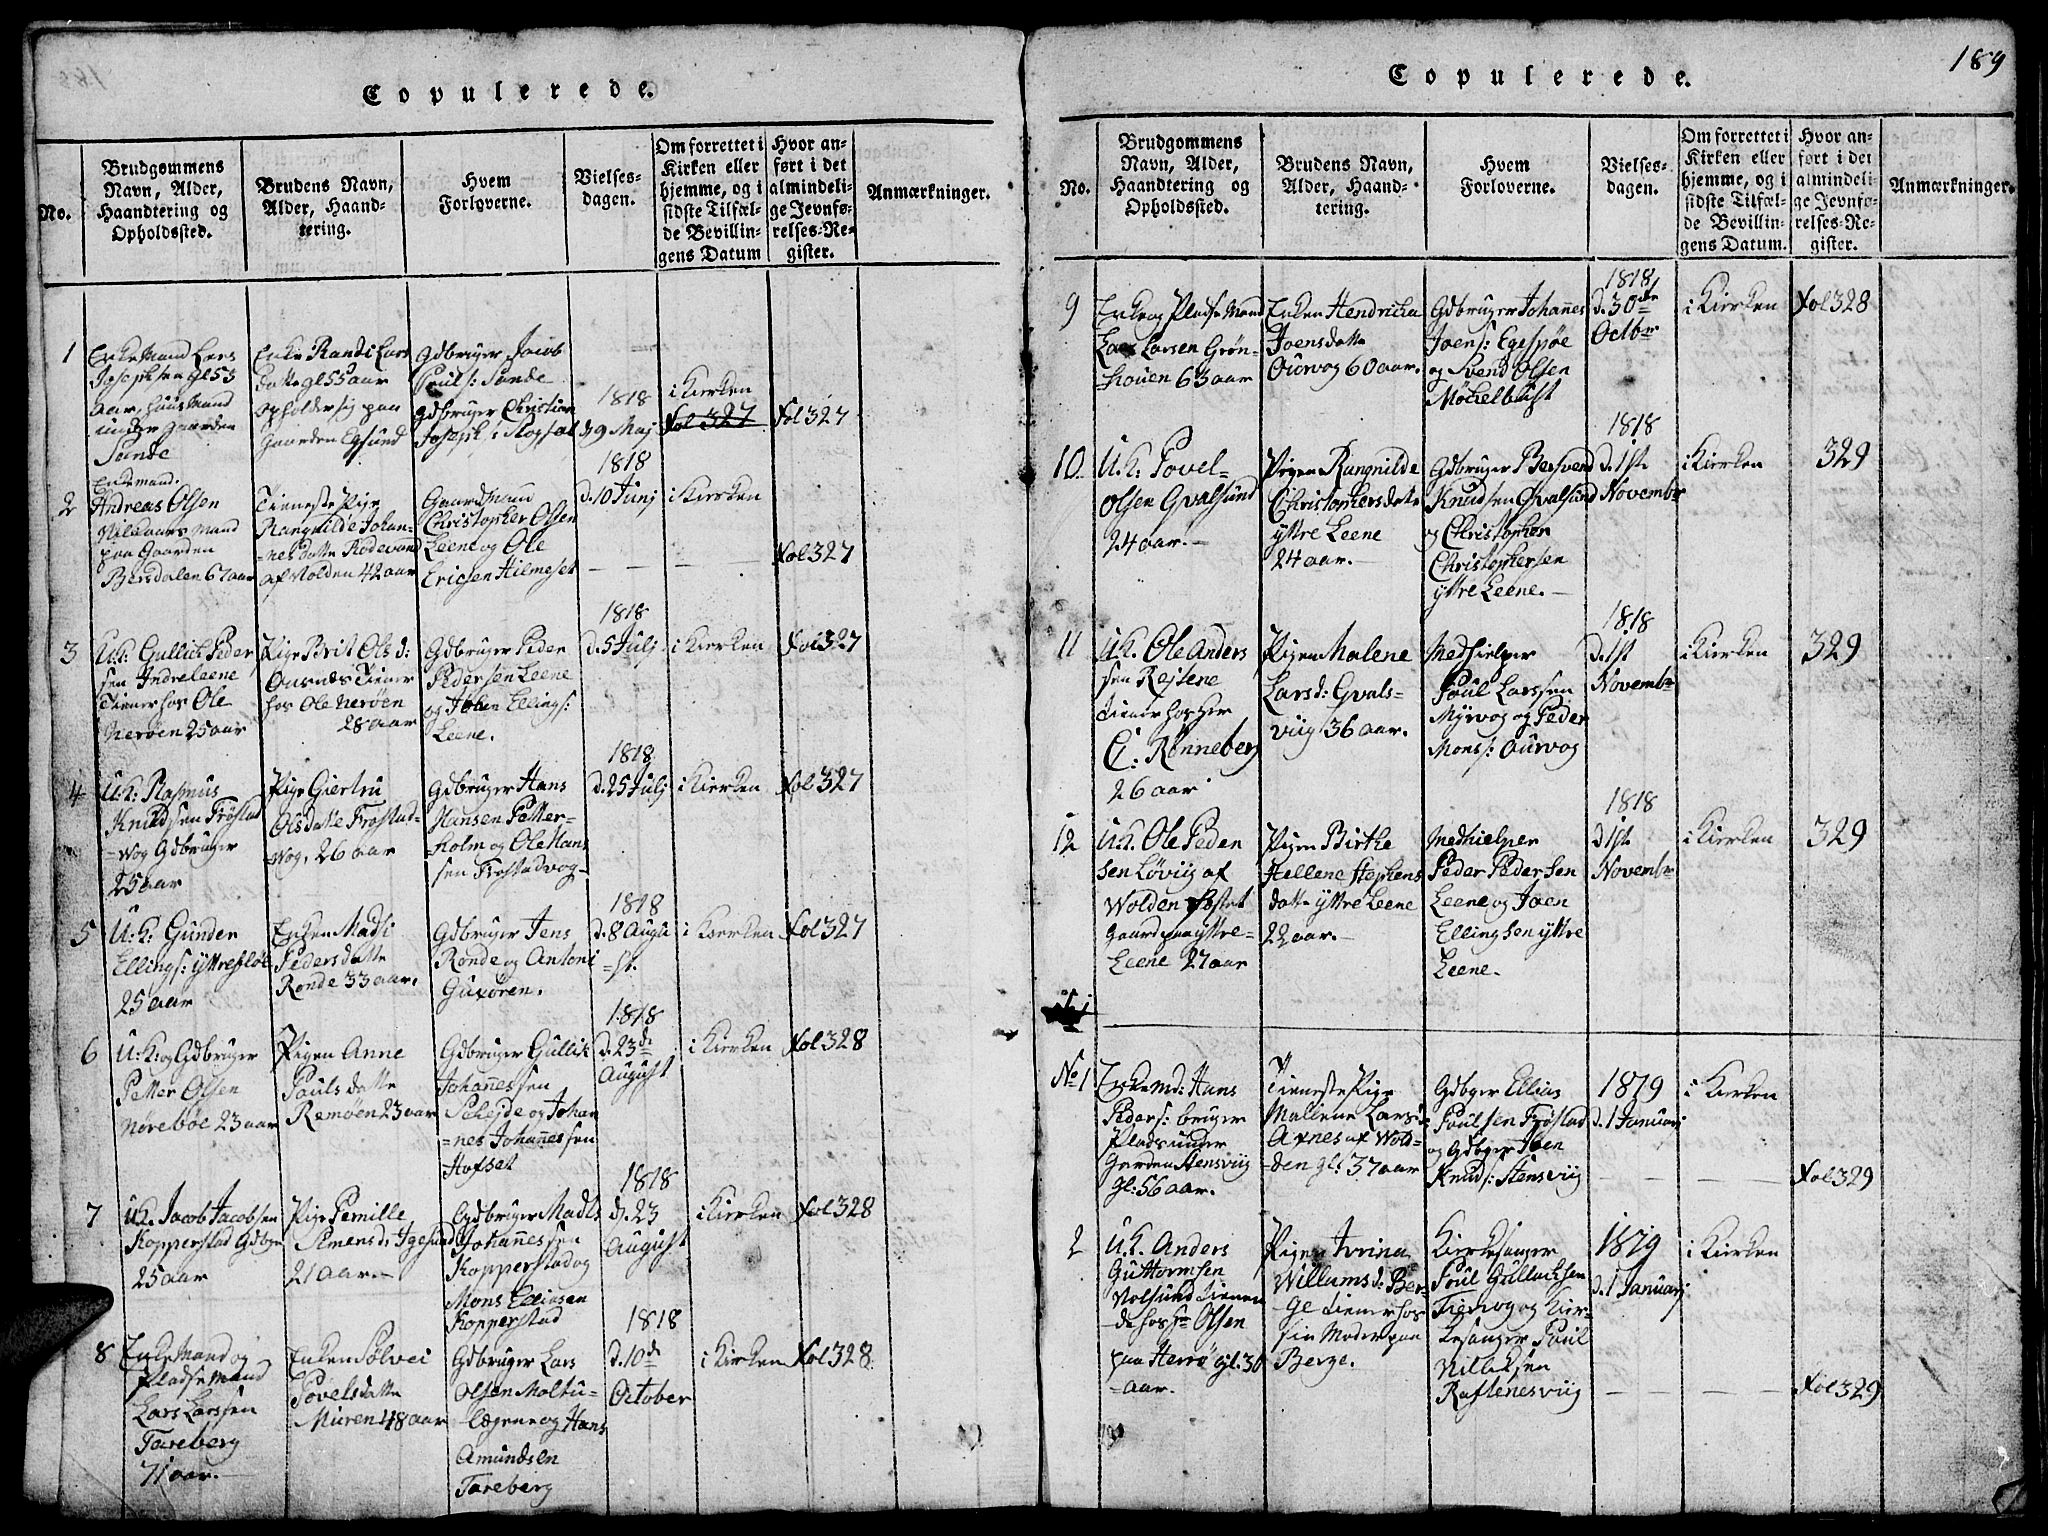 Copulerede.
No.
Brudgommens
Navn, Alder,
Haandtering og
Opholdssted.
Brudens Navn,
Alder, Haand-
tering.
Hvem
Forloverne.
Vielses-
dagen.
Om forrettet i
Kirken eller
hjemme, og i
sidste Tilfæl-
de Bevillin-
gens Datum
Hvor an-
ført i det
almindeli-
ge Jevnfø-
relses-Re-
gister.
Anmærkninger.
1
Enkemand Lars
Josephsen gl 53
aar, Huusmand
under gaarden
Sande
Enke Randi Lars
datte gl 55 aar
opholder sig paa
Gaarden Egsund
Gdbruger Jacob
Pouls: Sande
Gdbruger Christian
Joseph:
1818
d 9 Maj
i Kierken
Fol 327
Fol 327
2
Enkemand.
Andreas Olsen
Vilkaarsmand
paa Gaarden
Bersdalen 67 aar
Tieneste Pige
Rangnilde Johan-
nesdatte Rødevand
af Volden 42 aar
Gaardmand
Christopher Olsen
Leene og Ole
Ericsen Hilmeset
1818
d. 10 Junj
i Kierken
Fol 327
3
U.K: Gullich Peder
sen Indreleene
Tiener hos Ole
Nerøen 25 aar
Pige Brit Ols d:
Ousnes Tiener
hos Ole Nerøen
28 aar
Gdbruger Peder
Pedersen Leene
og Johen Ellings:
Leene.
1818
d. 5 Julj
i Kierken
Fol 327
4
U.K: Rasmus
Knudsen Frøstad
=wog Gdbruger
25 aar
Pige Giertru
Olsdatte Frøstad-
wog, 26 aar
Gdbruger Hans
Hansen Petter-
holm og Ole Hans
sen Frostadvog-
1818
d. 25 Julj
i Kierken
Fol 327
5
U.K: Gunder
Ellings: yttrefløe
25 aar
Enken Madli
Pedersdatte
Ronde 33 aar.
Gdbruger Jens
Ronde og Antoni
Guxøren.
1818
d. 8 Augu
=st.
i Kierken
Fol 327
6
U:K: og Gdbruger
Petter Olsen
Nørebøe 23 aar
Pigen Anne
Pouls datte
Remøen 23 aar
Gdbruger Gullik
Johannessen
og Johan
=nes Johannessen
Hofset
1818
d. 23de
August
i Kierken
Fol 328
7
U.K. Jacob Jacobsen
Kopperstad Gdbger
25 aar
Pige Pernille
Simensd: Igesund
21 Aar.-
Gdbruger Madls
Johannessen
Kopperstad og
Mons Elliasen
Kopperstad
1818
d. 23
August
i Kierken
Fol 328
8
Enkemand og
Pladsemand
Lars Larsen
Tareberg
71 aar.
Enken Sølvei
Povelsdatte
Muren 48 aar
Gdbruger Lars
Olsen Moltu-
Lægene og Hans
Amundsen
Tareberg
1818
d. 10de
October
i Kierken
Fol 328
189
Copulerede.
No.
Brudgommens
Navn, Alder,
Haandtering og
Opholdssted.
Brudens Navn,
Alder, Haand-
tering.
Hvem
Forloverne.
Vielses-
dagen.
Om forrettet i
Kirken eller
hjemme, og i
sidste Tilfæl-
de Bevillin-
gens Datum.
Hvor an-
ført i det
almindeli-
ge Jevnfø-
relses-Re-
gister.
Anmærkninger.
9
Enke og Pladsemand
Lars Larsen Grøn-
houen 63 aar
Enken Hendricka
Joensdatte
Ourvog 60 aar.
Gdbruger Johannes
Joens: Egespøe
og Svend Olsen
Møckelbust
1818
d. 30de
Octbr
i Kierken
Fol 328
10
U.K: Povel-
Olsen Gvalsund
24 aar.-
Pigen Rangnilde
Christophersdatte
yttre Leene
24 aar.-
Gdbruger Bersvend
Knudsen Qvalsund
og Christopher
Christophersen
yttre Leene.-
1818
d. 1ste
Novembr
i Kierken
329
11
U.K. Ole Anders
sen Rejsene
tiener hos Hr
E: Rønneberg
26 aar
Pigen Malene
Lars d: Gvals-
viig 36 aar.
Medhielper
Poul Larssen
Myrvog og Peder
Mons: Ourvog
1818
d. 1st
Novembr
i Kierken
329
12
U.K. Ole Peder
sen Løviig af
Wolden fæstet
Gaard paa yttre-
Leene 27 aar
Pigen Birthe
Hellene Stephens
datte yttre Leene
22 aar.-
Medhielper
Peder Pedersen
Leene og Joen
Ellingsen yttre
Leene.
1818
d 1st
Novembr
i Kierken
329
No 1
Enkemd: Hans
Peders: bruger
Plads under
Gerden Stensviig
gl: 56 aar.
Tieneste Pige
Mallene Lars d:
Axnes af Wold-
den gl: 37 aar
Gdbger Ellias
Poulsen Frøstad
og Gdbger Joen
Knuds: Stensviig
1819
d. 1 Januarj
i Kierken
Fol 329
2
U.K. Anders
Guttormsen
Volsund tienen
de hos Sr Olsen
paa Herrø gl. 30
-aar.
Pigen Ivrina
Willums d: Ber-
ge tiener hos
sin Moder paa
Berge.
Kirkesanger
Poul Gullachsen
og Kier-
kesanger Poul
Nillessen
Raftenesviig
1819
d. 1 Januarj
i Kierken
Fol 329